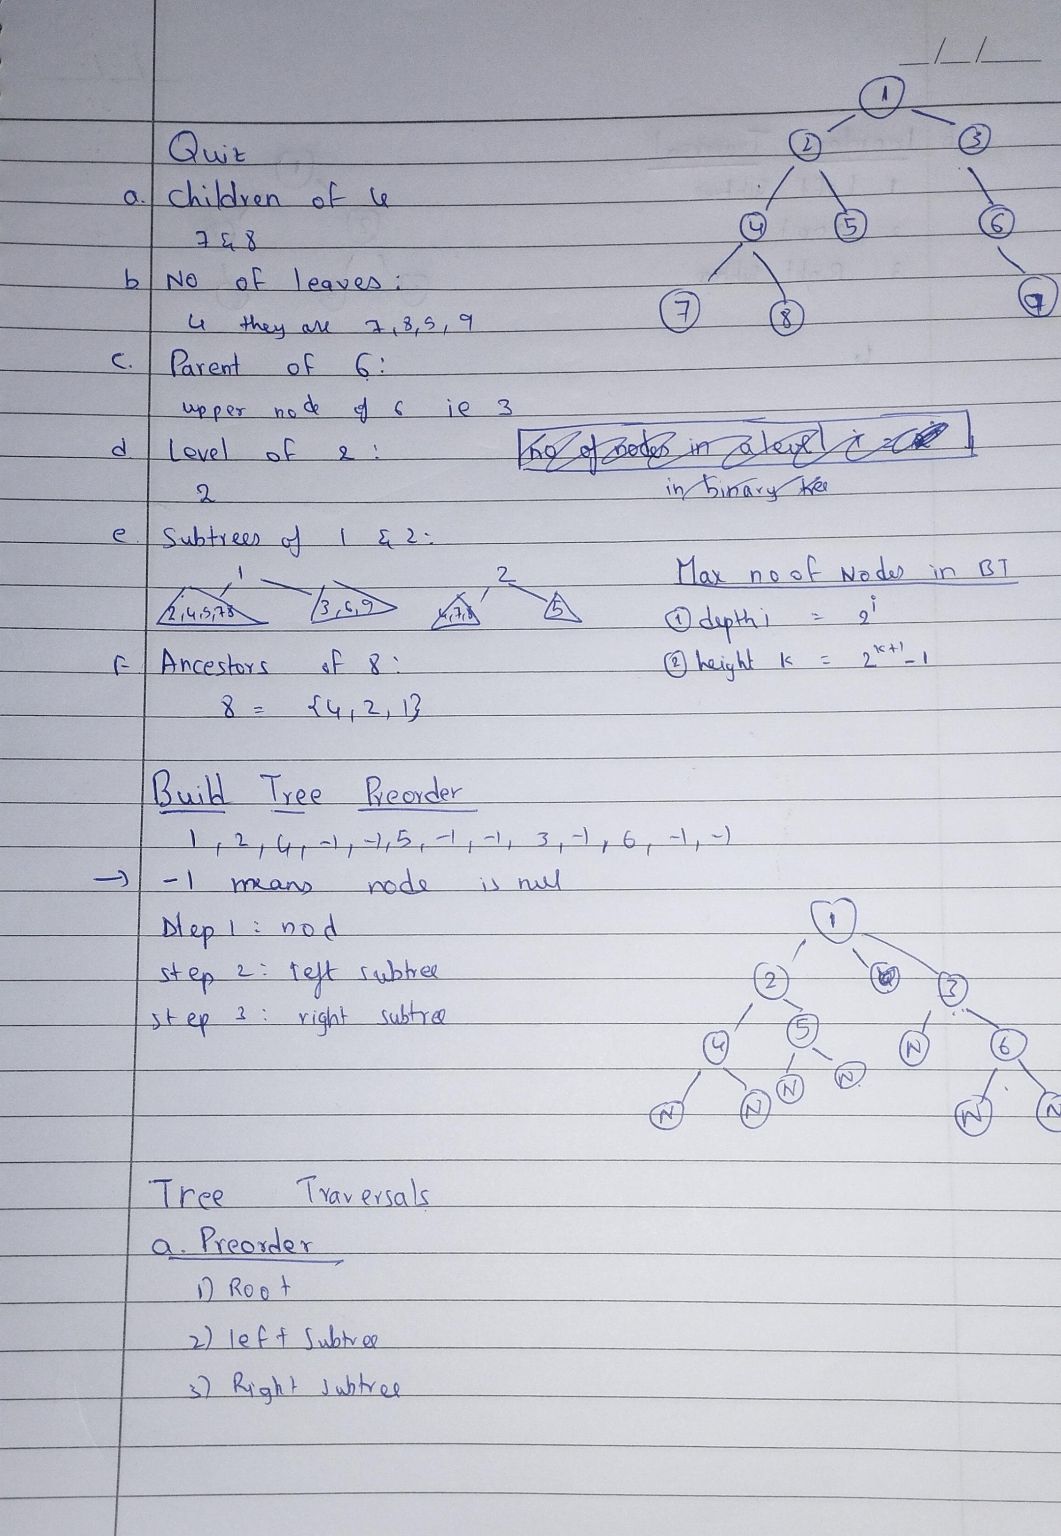 _/_/__
1
Quiz
2 3
a. children of 4
4 5 6
7 & 8
b No of leaves :
7 8 9
4 they are 7,8,5,9
c. Parent of 6:
upper node of 6 ie 3
d Level of 2 :
no of nodes in a level i =
2
in binary tree
e. Subtrees of 1 & 2:
1 2
2,4,5,7,8 3,6,9 4,7,8 5
Max no of Nodes in BT
① depth i = 2^i
f Ancestors of 8 :
② height k = 2^k+1 - 1
8 = {4, 2, 1}
Build Tree Preorder
1, 2, 4, -1, -1, 5, -1, -1, 3, -1, 6, -1, -1
→ -1 means node is null
Step 1 : nod
1
step 2: left subtree
2 3
step 3 : right subtree
4 5 N 6
N N N N N N
Tree Traversals
a. Preorder
1) Root
2) left Subtree
3) Right subtree